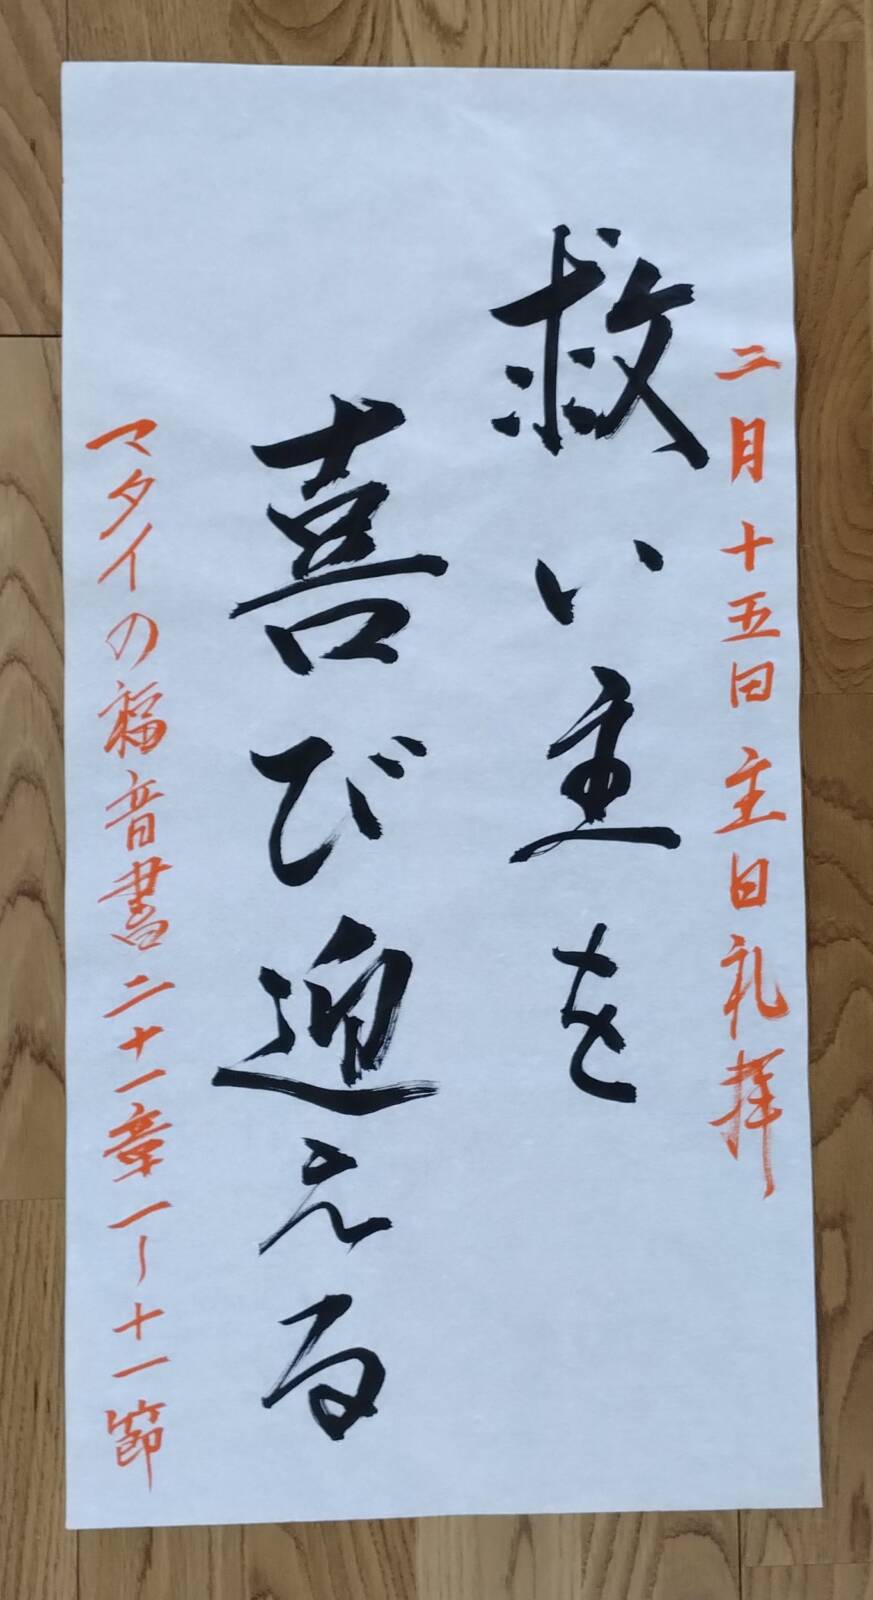 二月十五日主日礼拝
救い主を
喜び迎える
マタイの福音書二十一章一〜十一節